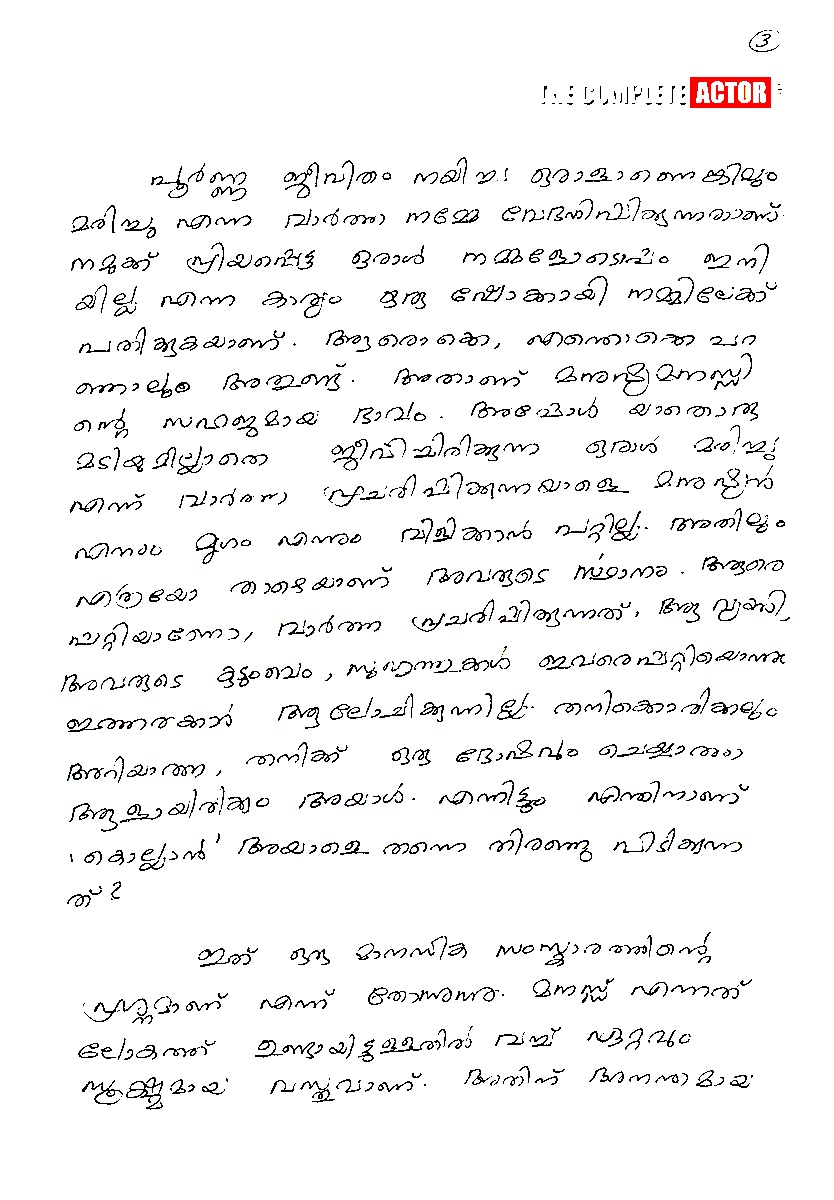 3
THE COMPLETE ACTOR
പൂർണ്ണ ജീവിതം നയിച്ച ഒരാളാണെങ്കിലും
മരിച്ചു എന്ന വാർത്ത നമ്മേ വേദനിപ്പിക്കുന്നതാണ്.
നമുക്ക് പ്രിയപ്പെട്ട ഒരാൾ നമ്മളോടൊപ്പം ഇനി
യില്ല എന്ന കാര്യം ഒരു ഷോക്കായി നമ്മിലേക്ക്
പതിക്കുകയാണ്. ആരൊക്കെ, എന്തൊക്കെ പറ
ഞ്ഞാലും അതുണ്ട്. അതാണ് മനുഷ്യമനസ്സി
ന്റെ സഹജമായ ഭാവം. അപ്പോൾ യാതൊരു
മടിയുമില്ലാതെ ജീവിച്ചിരിക്കുന്ന ഒരാൾ മരിച്ചു
എന്ന് വാർത്ത പ്രചരിപ്പിക്കുന്നയാളെ മനുഷ്യൻ
എന്നും മൃഗം എന്നും വിളിക്കാൻ പറ്റില്ല. അതിലും
എത്രയോ താഴെയാണ് അവരുടെ സ്ഥാനം. ആരെ
പറ്റിയാണോ, വാർത്ത പ്രചരിപ്പിക്കുന്നത്, ആ വ്യക്തി,
അവരുടെ കുടുംബം, സുഹൃത്തുക്കൾ ഇവരെപ്പറ്റിയൊന്നും
ഇത്തരക്കാർ ആലോചിക്കുന്നില്ല. തനിക്കൊരിക്കലും
അറിയാത്ത, തനിക്ക് ഒരു ദ്രോഹവും ചെയ്യാത്ത
ആളായിരിക്കും അയാൾ. എന്നിട്ടും എന്തിനാണ്
'കൊല്ലാൻ' അയാളെ തന്നെ തിരഞ്ഞു പിടിക്കുന്ന
ത്?
ഇത് ഒരു മാനസിക സംസ്ക്കാരത്തിന്റെ
പ്രശ്നമാണ് എന്ന് തോന്നുന്നു. മനസ്സ് എന്നത്
ലോകത്ത് ഉണ്ടായിട്ടുള്ളതിൽ വച്ച് ഏറ്റവും
സൂക്ഷ്മമായ വസ്തുവാണ്. അതിന് അനന്തമായ